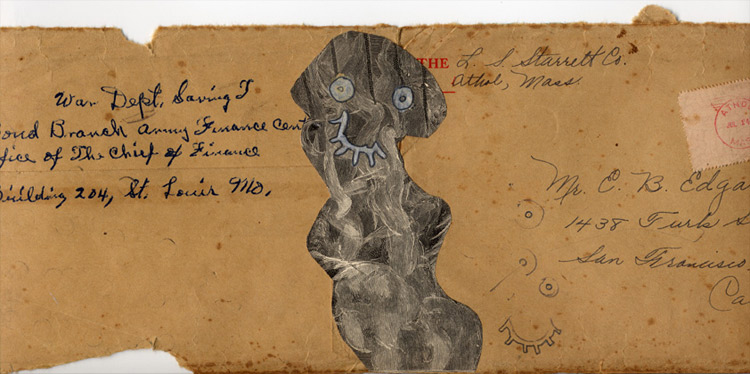 War Dept, Saving T
ond Branch Army Finance Cent
fice of The Chief of Finance
uilding 204, St. Louis Mo.
THE L. S Starrett Co.
Athol, Mass.
Mr. E. B. Edga
1438 Turk S
San Francisco
Ca